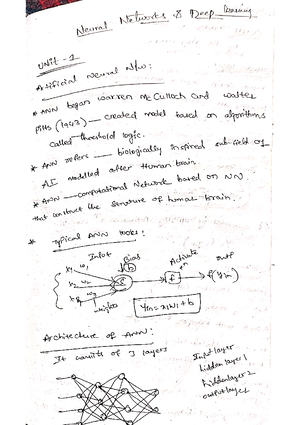 Neural Networks & Deep Learning
UNIT - 1
Artificial Neural N/w:
* ANN began warren Mc Culloch and walter
pitts (1943) — created model based on algorithms
called threshold logic.
* ANN refers — biologically inspired sub-field of
AI modelled after Human brain
* ANN — computational Network based on NN.
that construct the structure of human brain.
* Typical ANN looks:
Input Bias Activate outp
x1 w1 b
x2 w2 f f(yin)
x3 w3
weights Yin = xiwi + b
Architecture of ANN:
It consists of 3 layers
Input layer
hidden layer 1
hidden layer 2
output layer